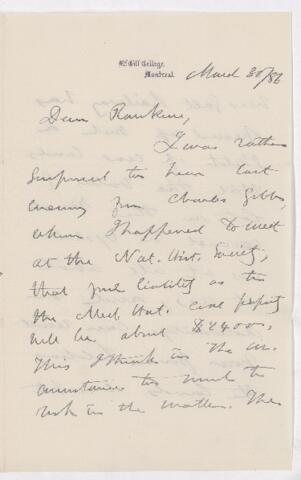 McGill College,
Montreal.
March 30/86
Dear Rankine,
I was rather
surprised to hear last
evening from Charles Gibb,
whom I happened to meet
at the Nat. Hist. Society,
that your liability as to
the Med. Hat. coal property
will be about $24000.
This I think in the cir-
cumstances too much to
risk in the matter. The